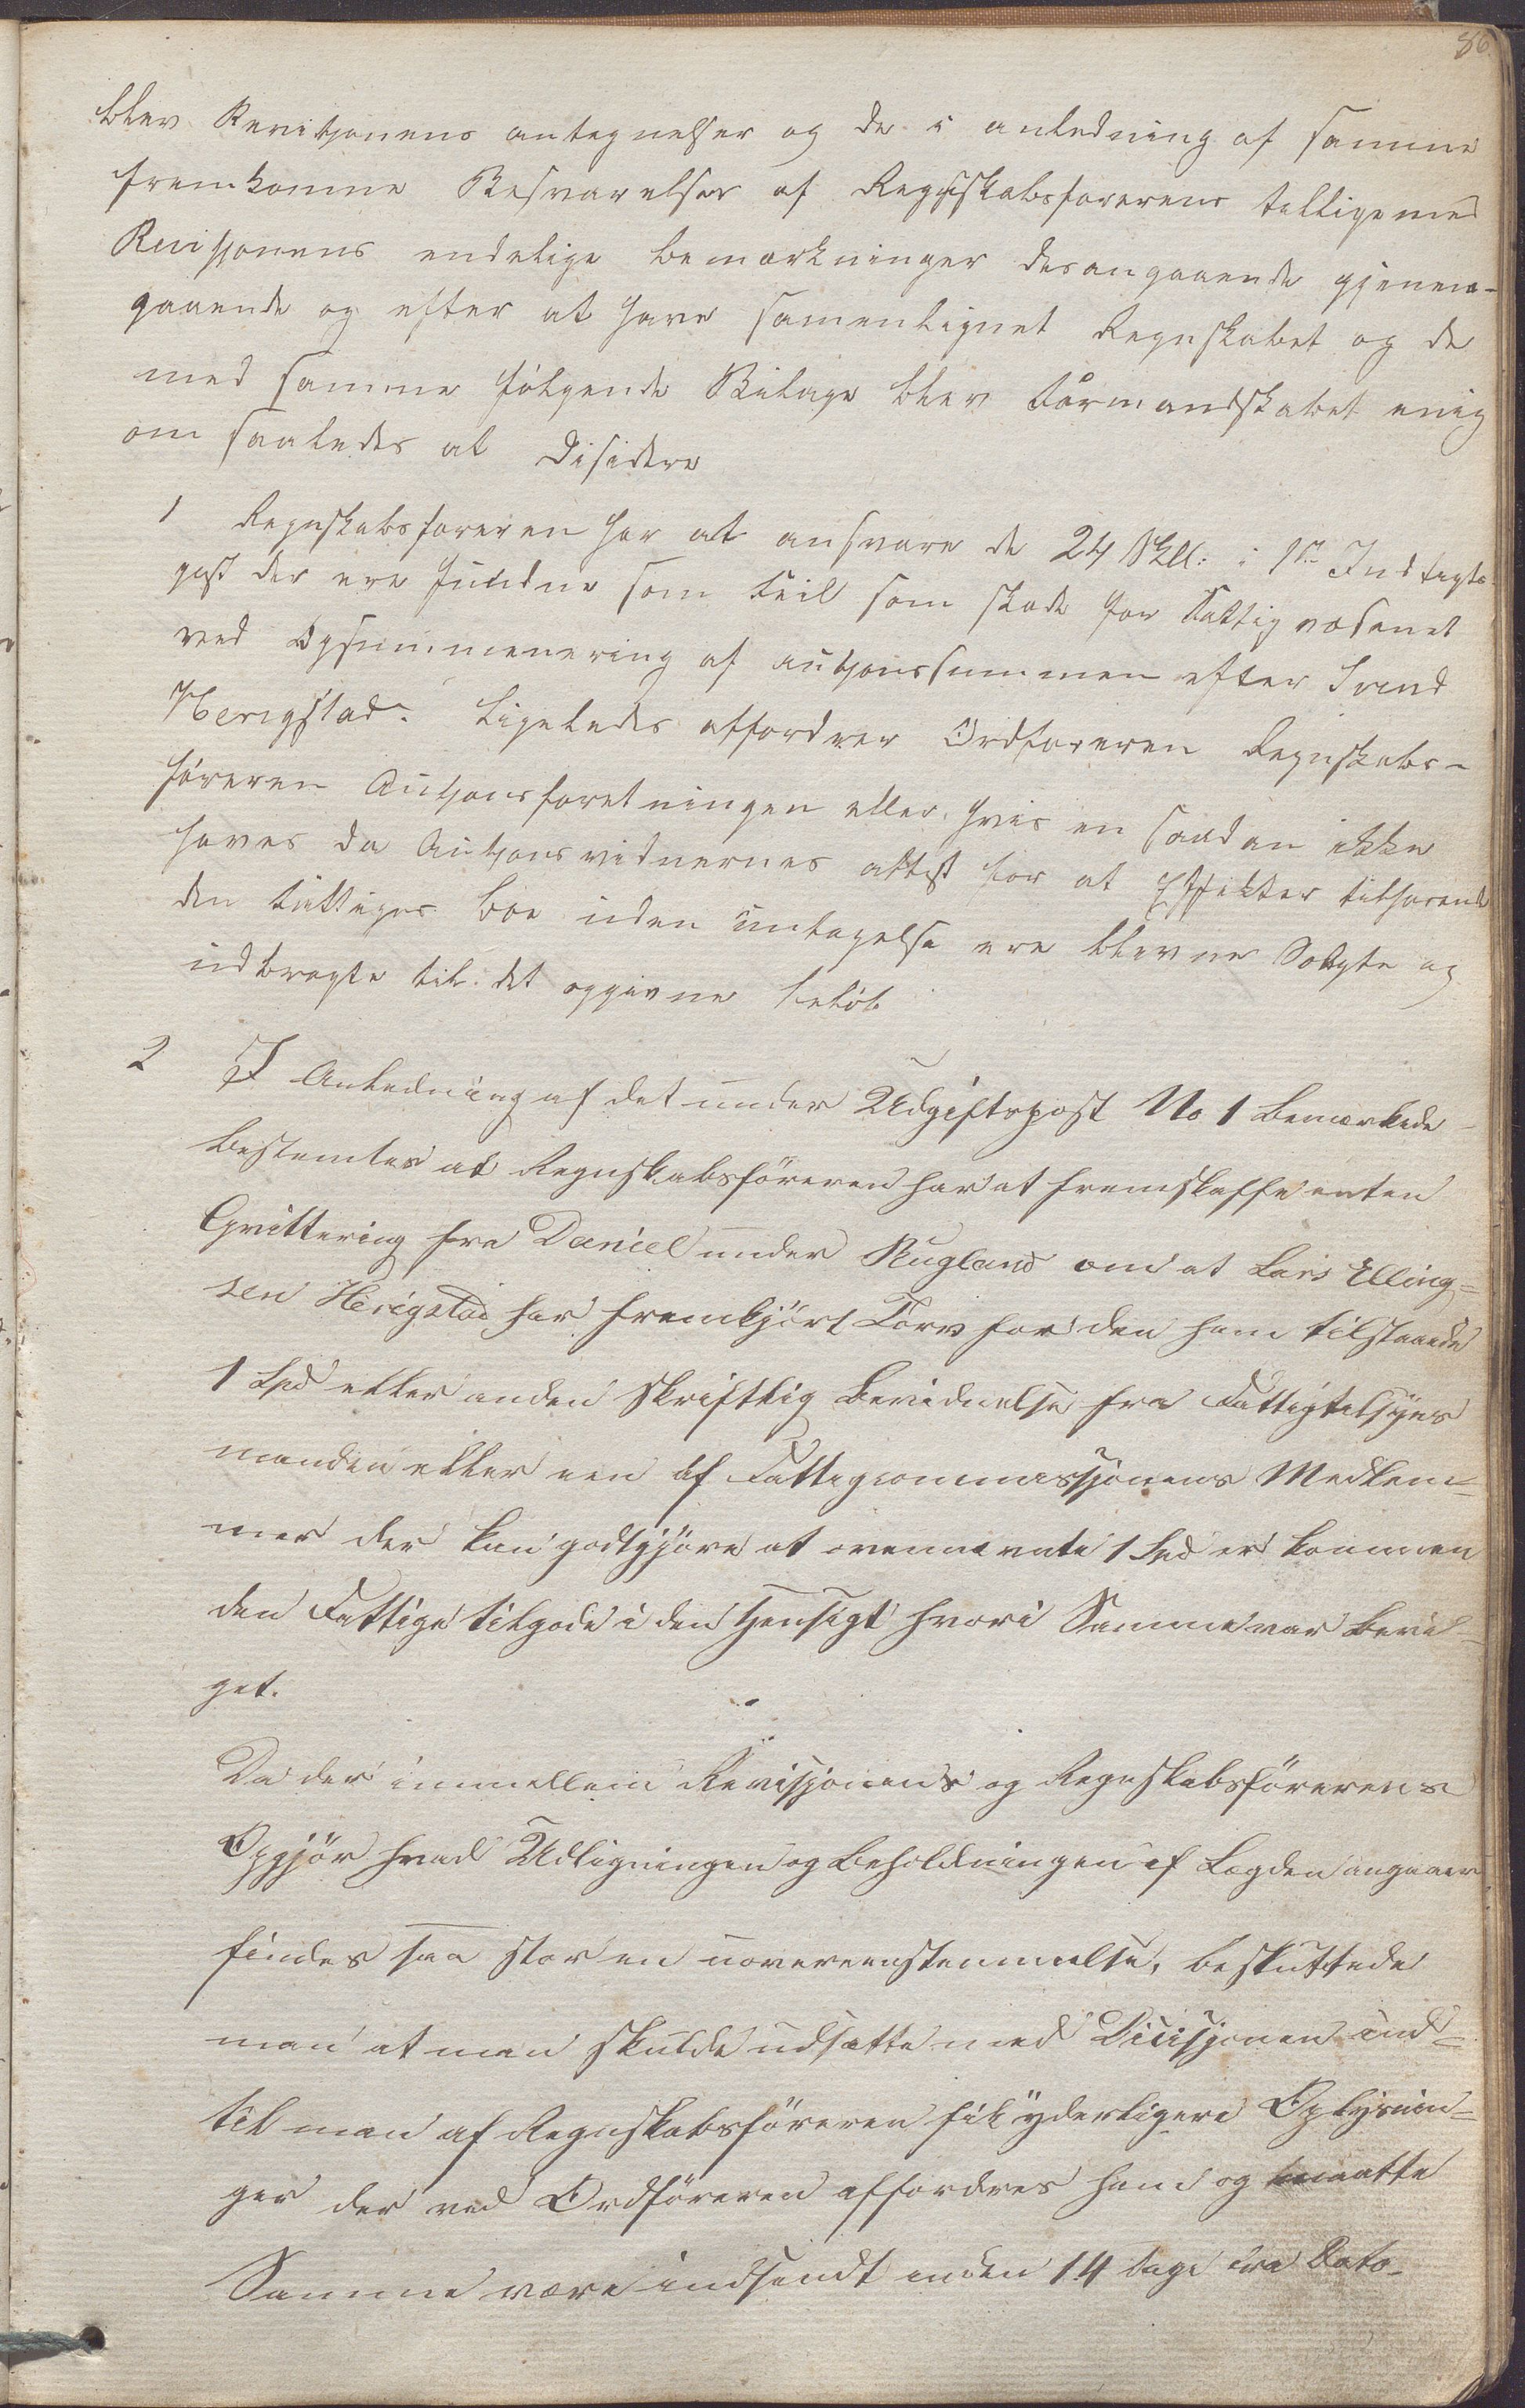 86.
blev Revitjonens antegnelser og de i anledning af samme
fremkomne Besvarelser af Regnskabsførerens tilligemed
Revisjonens endelige bemærkninger desangaaende gjenem-
gaaende og efter at have samenlignet Regnskabet og de
med samme følgende Bilage blev Formandskabet enig
om saaledes at Disidere
1 Regnskabsføreren har at ansvare de 24 Skll: i 1ste Indtægts
post der ere fundne som Feil som skade for Fattigvæsenet
ved Opsummenering af autjonssummen efter Svend
Herigstad. Ligeledes affordrer Ordføreren Regnskabs-
føreren Autjonsforetningen eller, hvis en saadan ikke
haves da Autjonsvidnernes attest for at Effekter tilhørende
den fattiges boe uden untagelse ere blevne Solgte og
udbragte til det opgivne beløb
2 I Anledning af det under Udgiftspost No 1 bemærkede
bestemtes at Regnskabsføreren har at fremskaffe enten
Qvittering fra Daniel under Rugland om at Lars Elling=
sen Herigstad har fremkjørt Torv for den ham tilstaaede
1 Spd eller anden skriftlig bevidnelse fra Fattigtilsyns
manden eller een af Fattigcommissjonens Medlem=
mer der kan godtgjøre at ovennævnte 1 Spd er kommen
den Fattige tilgode i den Hensigt hvori Samme var bevil-
get.
Da der immellem Revisjonens og Regnskabsførerens
Opgjør hvad Udligningen og Beholdningen af Lægden angaaer
findes saa stor en uovereenstemmelse, besluttede
man at man skulde udsætte med Dicisjonen ind=
til man af Regnskabsføreren fik yderligere Oplysnin=
ger der ved Ordføreren affordres ham og maatte
Samme være indsendt inden 14 dage fra Dato.